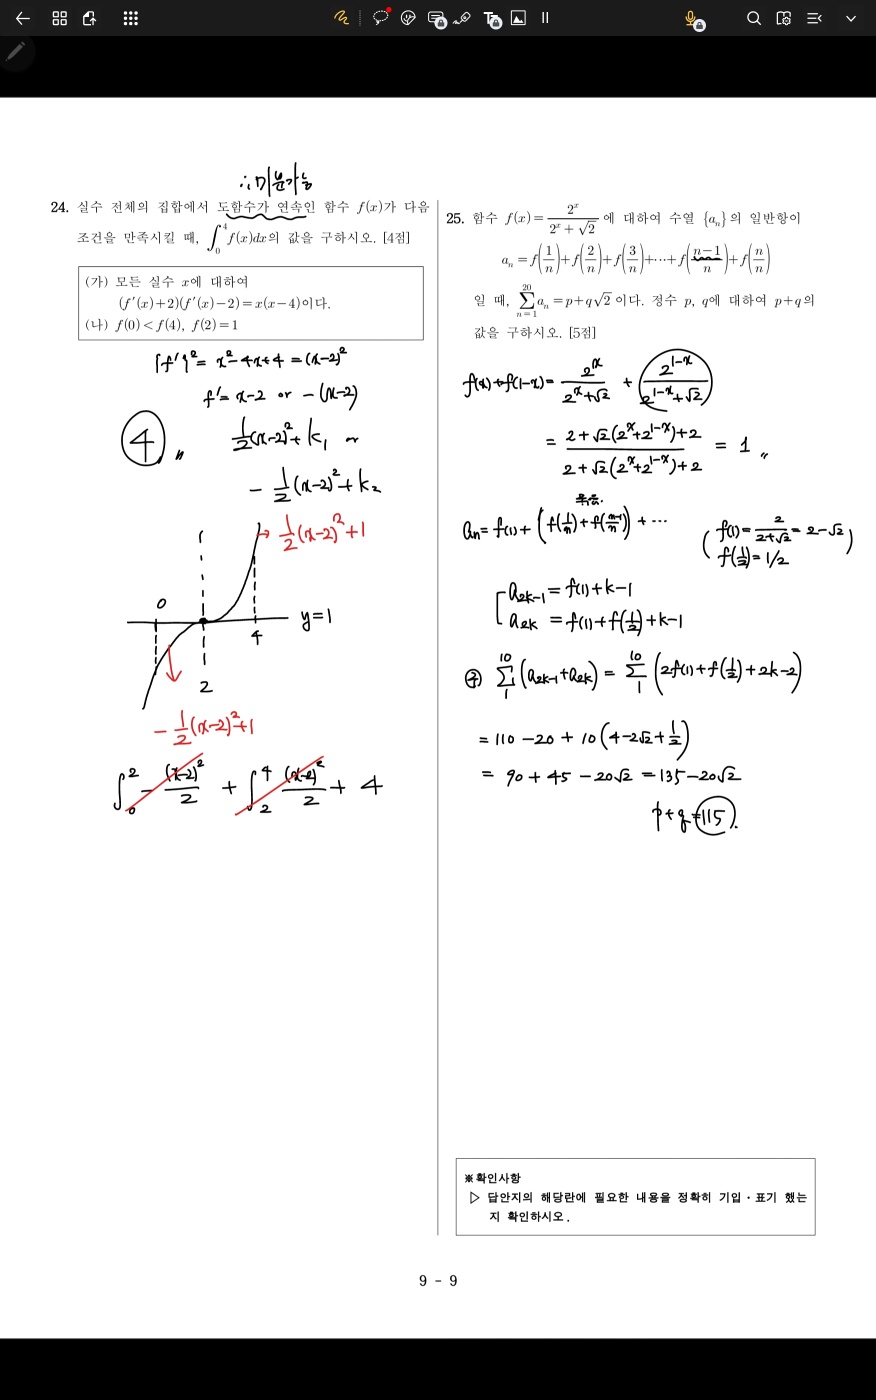 ∴ 미분가능
24. 실수 전체의 집합에서 도함수가 연속인 함수 f(x)가 다음
조건을 만족시킬 때, ∫₀⁴ f(x)dx의 값을 구하시오. [4점]
(가) 모든 실수 x에 대하여
(f′(x)+2)(f′(x)−2)=x(x−4)이다.
(나) f(0)<f(4), f(2)=1
{f′}² = x²−4x+4 = (x−2)²
f′= x−2 or −(x−2)
④ 〃
1/2(x−2)²+k₁ or
− 1/2(x−2)²+k₂
→ 1/2(x−2)²+1
0
y=1
4
2
− 1/2(x−2)²+1
∫₀² − (x−2)²/2 + ∫₂⁴ (x−2)²/2 + 4
25. 함수 f(x)= 2ˣ/(2ˣ+√2) 에 대하여 수열 {aₙ}의 일반항이
aₙ = f(1/n)+f(2/n)+f(3/n)+⋯+f((n−1)/n)+f(n/n)
일 때, ∑_{n=1}^{20} aₙ = p+q√2 이다. 정수 p, q에 대하여 p+q의
값을 구하시오. [5점]
f(x)+f(1−x)= 2ˣ/(2ˣ+√2) + 2^{1−x}/(2^{1−x}+√2)
= (2+√2(2ˣ+2^{1−x})+2)/(2+√2(2ˣ+2^{1−x})+2) = 1 〃
aₙ= f(1)+ (f(1/n)+f((n−1)/n)) + ⋯
( f(1)= 2/(2+√2) = 2−√2 )
f(1/2)= 1/2
a₂ₖ₋₁ = f(1)+k−1
a₂ₖ = f(1)+f(1/2)+k−1
∑₁¹⁰ (a₂ₖ₋₁+a₂ₖ) = ∑₁¹⁰ (2f(1)+f(1/2)+2k−2)
= 110−20 + 10(4−2√2+1/2)
= 90+45−20√2 = 135−20√2
p+q=115.
※ 확인사항
▷ 답안지의 해당란에 필요한 내용을 정확히 기입・표기 했는
지 확인하시오.
9 - 9